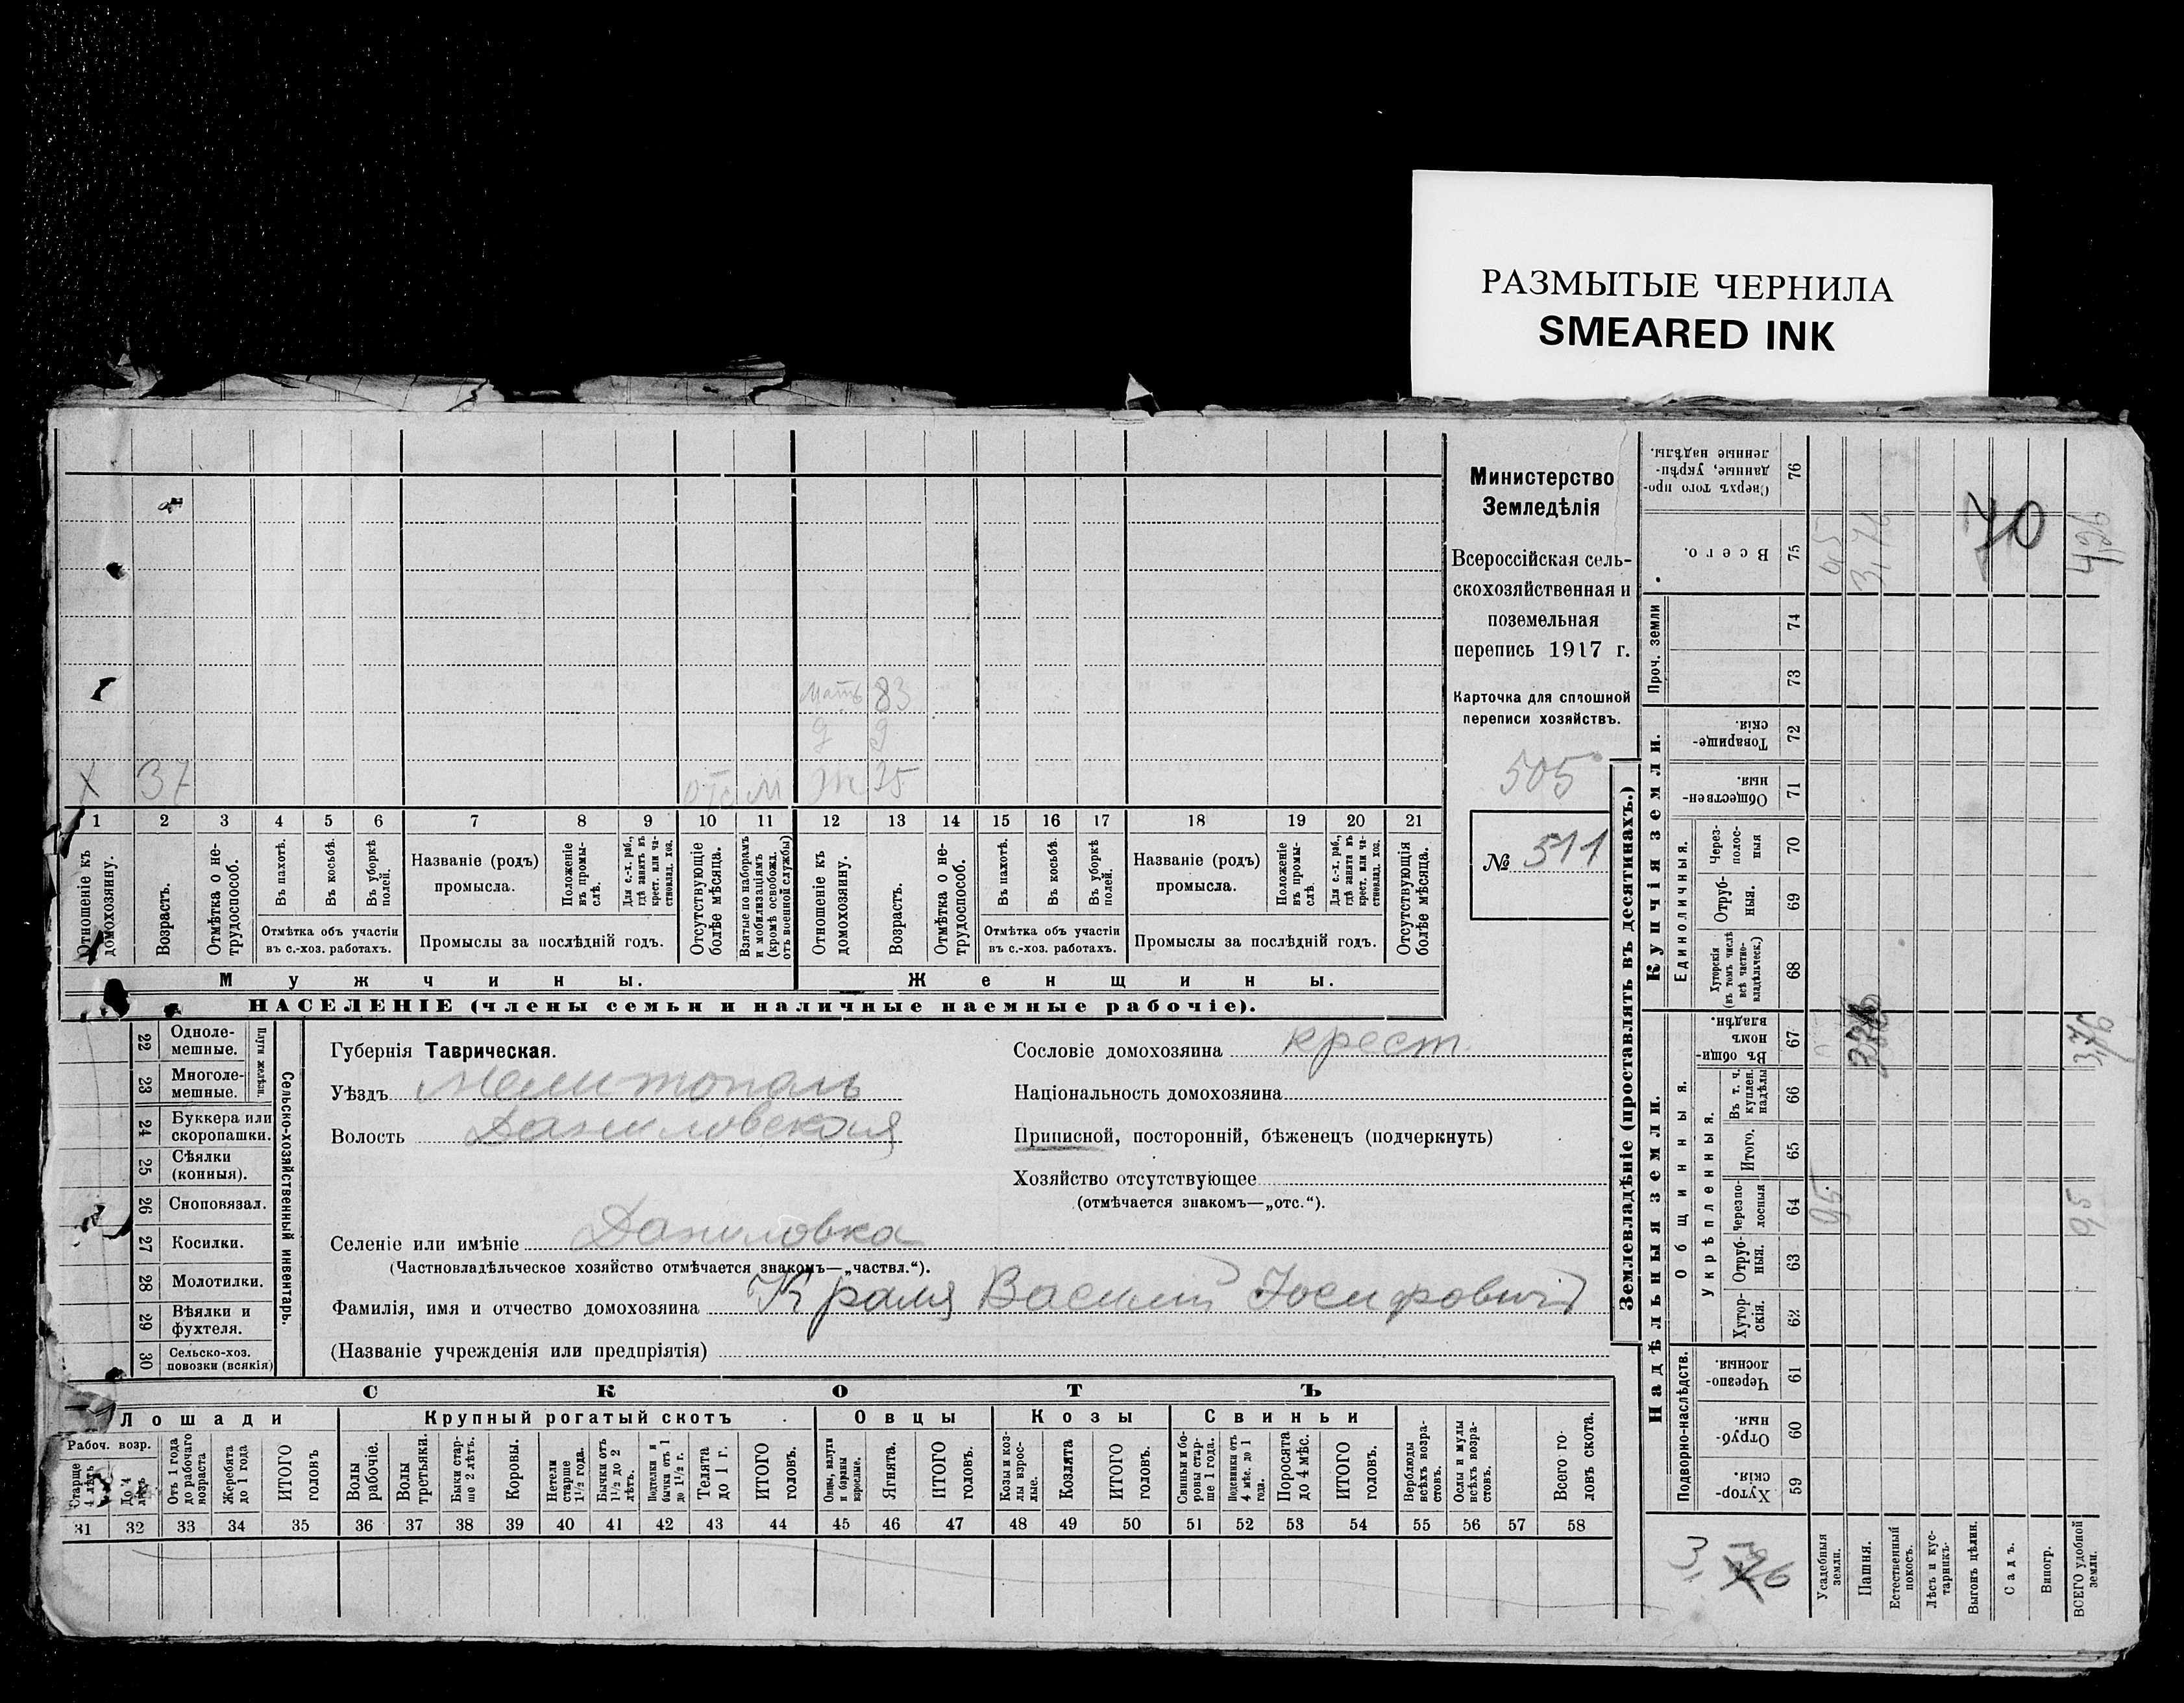 РАЗМЫТЫЕ ЧЕРНИЛА
SMEARED INK
Министерство
Земледѣлія
Всероссійская сель-
скохозяйственная и
поземельная
перепись 1917 г.
Карточка для сплошной
переписи хозяйствъ.
505
№ 511
мать 83
9
Х 37 М Ж 35
1 2 3 4 5 6 7 8 9 10 11 12 13 14 15 16 17 18 19 20 21
Отношеніе къ домохозяину.
Возрастъ.
Отмѣтка о не-трудоспособ.
Въ пахотѣ.
Въ косьбѣ.
Въ уборкѣ полей.
Отмѣтка объ участіи
въ с.-хоз. работахъ.
Названіе (родъ)
промысла.
Положеніе въ промы-слѣ.
Для с.-х. раб., гдѣ занятъ въ крест. или ча-стновлад. хоз.
Промыслы за послѣдній годъ.
Отсутствующіе болѣе мѣсяца.
Взятые по наборамъ и мобилизаціямъ (кромѣ освобожд. отъ военной службы)
Отношеніе къ домохозяину.
Возрастъ.
Отмѣтка о не-трудоспособ.
Въ пахотѣ.
Въ косьбѣ.
Въ уборкѣ полей.
Отмѣтка объ участіи
въ с.-хоз. работахъ.
Названіе (родъ)
промысла.
Положеніе въ промы-слѣ.
Для с.-х. раб., гдѣ занята въ крест. или ча-стновлад. хоз.
Промыслы за послѣдній годъ.
Отсутствующія болѣе мѣсяца.
Мужчины. Женщины.
НАСЕЛЕНІЕ (члены семьи и наличные наемные рабочіе).
22 Одноле-мешные.
23 Многоле-мешные.
Плуги желѣзн.
24 Буккера или скоропашки.
25 Сѣялки (конныя).
26 Сноповязал.
27 Косилки.
28 Молотилки.
29 Вѣялки и фухтеля.
30 Сельско-хоз. повозки (всякія)
Сельско-хозяйственный инвентарь.
Губернія Таврическая.
Уѣздъ Мелитополь
Волость Даниловская
Селеніе или имѣніе Даниловка
(Частновладѣльческое хозяйство отмѣчается знакомъ—„частвл.“).
Фамилія, имя и отчество домохозяина Краля Василій Іосифовичъ
(Названіе учрежденія или предпріятія)
Сословіе домохозяина крест.
Національность домохозяина
Приписной, посторонній, бѣженецъ (подчеркнуть)
Хозяйство отсутствующее
(отмѣчается знакомъ—„отс.“).
СКОТЪ
Лошади Крупный рогатый скотъ Овцы Козы Свиньи
Рабоч. возр.
Старше 4 лѣтъ
До 4 лѣтъ
Отъ 1 года до рабочаго возраста
Жеребята до 1 года
ИТОГО головъ
Волы рабочіе.
Волы третьяки.
Быки стар-ше 2 лѣтъ.
Коровы.
Нетели старше 1½ года.
Бычки отъ 1½ до 2 лѣтъ.
Подтелки и бычки отъ 1 до 1½ г.
Телята до 1 г.
ИТОГО головъ.
Овцы, валухи и бараны взрослые.
Ягнята.
ИТОГО головъ.
Козы и коз-лы взрос-лые.
Козлята
ИТОГО головъ.
Свиньи и бо-ровы стар-ше 1 года.
Подсвинки отъ 4 мѣс. до 1 года.
Поросята до 4 мѣс.
ИТОГО головъ.
Верблюды всѣхъ возра-стовъ.
Ослы и мулы всѣхъ возра-стовъ.
Всего го-ловъ скота.
31 32 33 34 35 36 37 38 39 40 41 42 43 44 45 46 47 48 49 50 51 52 53 54 55 56 57 58
Землевладѣніе (проставлять въ десятинахъ.)
Надѣльныя земли.
Купчія земли.
Проч. земли
Подворно-наслѣдств.
Общинныя.
Укрѣпленныя.
Единоличныя.
Сверхъ того про-данные, укрѣп-ленные надѣлы. 76
Всего. 75 0,5 3,76 70 4,26
74
73
Товарище-скія. 72
Обществен-ныя. 71
Через-полос-ныя 70
Отруб-ныя. 69
Хуторскія (въ томъ числѣ всѣ частно-владѣльческ.) 68
Въ общи-номъ владѣн. 67 3,76
Въ т. ч. куплен. надѣлы 66
Итого. 65
Черезпо-лосныя 64 0,5 0,5
Отруб-ныя. 63
Хутор-скія. 62
Черезпо-лосныя. 61
Отруб-ныя. 60
Хутор-скія. 59
Усадебныя земли.
Пашня.
Естественный покосъ.
Лѣсъ и кус-тарникъ
Выгонъ цѣлин.
Садъ.
Виногр.
ВСЕГО удобной земли.